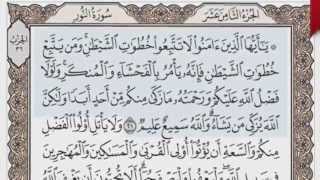 الجزء الثامن عشر
سورة النور
۞ يَٰٓأَيُّهَا ٱلَّذِينَ ءَامَنُوا۟ لَا تَتَّبِعُوا۟ خُطُوَٰتِ ٱلشَّيْطَٰنِ ۚ وَمَن يَتَّبِعْ
خُطُوَٰتِ ٱلشَّيْطَٰنِ فَإِنَّهُۥ يَأْمُرُ بِٱلْفَحْشَآءِ وَٱلْمُنكَرِ ۚ وَلَوْلَا
فَضْلُ ٱللَّهِ عَلَيْكُمْ وَرَحْمَتُهُۥ مَا زَكَىٰ مِنكُم مِّنْ أَحَدٍ أَبَدًا وَلَٰكِنَّ
ٱللَّهَ يُزَكِّى مَن يَشَآءُ ۗ وَٱللَّهُ سَمِيعٌ عَلِيمٌ ٢١ وَلَا يَأْتَلِ أُو۟لُوا۟ ٱلْفَضْلِ
مِنكُمْ وَٱلسَّعَةِ أَن يُؤْتُوٓا۟ أُو۟لِى ٱلْقُرْبَىٰ وَٱلْمَسَٰكِينَ وَٱلْمُهَٰجِرِينَ